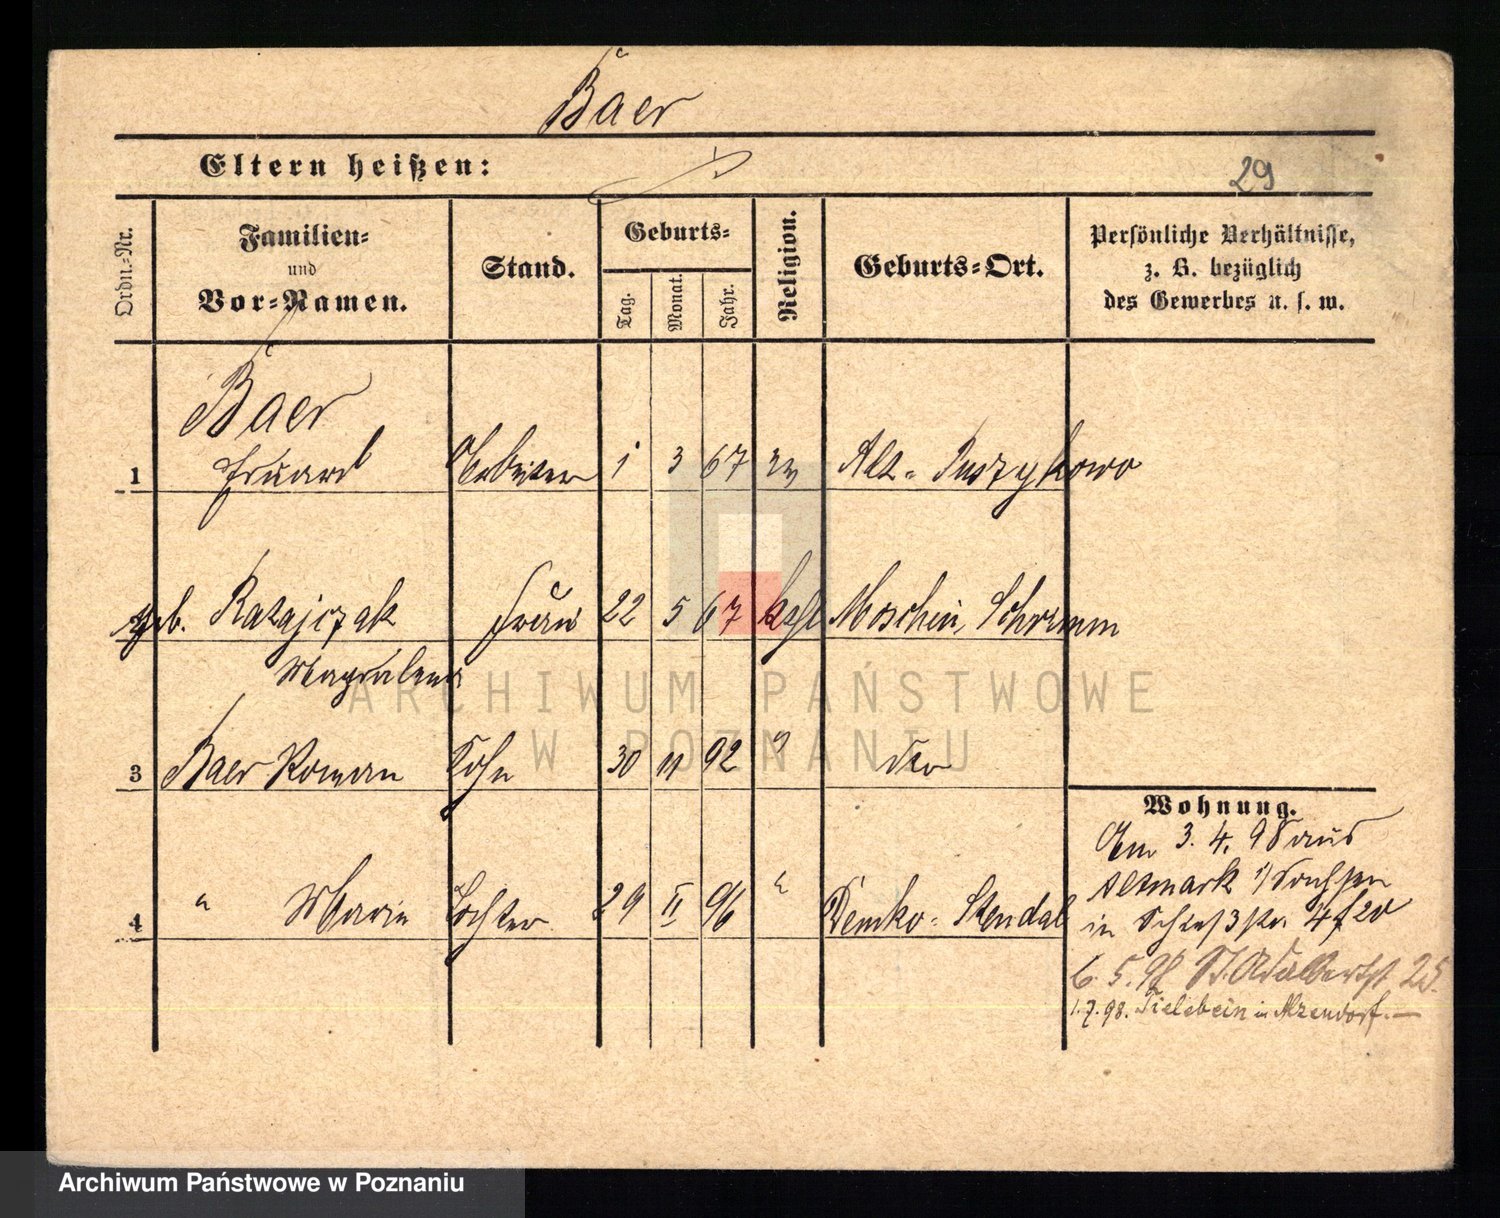 Baer
Eltern heißen:
29
Ordn.-Nr.
Familien-
und
Vor-Namen.
Stand.
Geburts-
Tag.
Monat.
Jahr.
Religion.
Geburts-Ort.
Persönliche Verhältnisse,
z. B. bezüglich
des Gewerbes u. s. w.
Baer
1 Eduard Arbeiter 1 3 67 ev Alt-Puszykowo
geb. Ratajczak Frau 22 5 67 kath Moschin, Schrimm
Magdalena
3 Baer Roman Sohn 30 11 92 " dto
4 " Marie Tochter 29 II 96 " Demko-Stendal
Wohnung.
Am 3. 4. 98 aus
Altmark
in 4
6. 5. 98 St. Adalbertst. 25.
1. 7. 98. in
ARCHIWUM PAŃSTWOWE
W POZNANIU
Archiwum Państwowe w Poznaniu